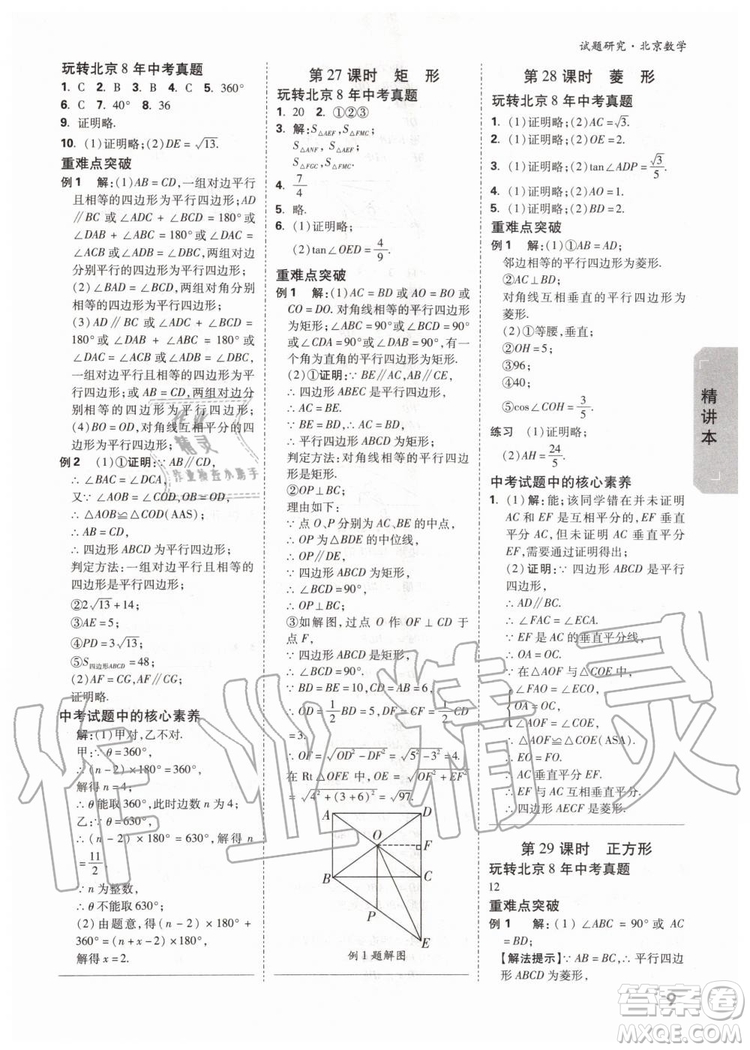 试题研究·北京数学
玩转北京8年中考真题
1. C  2. B  3. B  4. C  5. 360°
6. C  7. 40°  8. 36
9. 证明略.
10. (1)证明略;(2)DE=√13.
重难点突破
例1 解:(1)AB=CD,一组对边平行
且相等的四边形为平行四边形;AD
∥BC或∠ADC+∠BCD=180°或
∠DAB+∠ABC=180°或∠DAC=
∠BCA或∠ADB=∠DBC,两组对边
分别平行的四边形为平行四边形;
(2)∠BAD=∠BCD,两组对角分别
相等的四边形为平行四边形;
(3)AD∥BC或∠ADC+∠BCD=
180°或∠DAB+∠ABC=180°或
∠DAC=∠BCA或∠ADB=∠DBC,
两组对边平行且相等的四边形为平行四边形;
(4)BO=OD,对角线互相平分的四
边形为平行四边形.
例2 (1)①证明:∵AB∥CD,
∴∠BAC=∠DCA.
∵OA=OC,
∴△AOB≌△COD(AAS);
∴AB=CD,
∴四边形ABCD为平行四边形;
判定方法:一组对边平行且相等的
四边形为平行四边形;
②2√13+14;
③AE=5;
④PD=3√5;
⑤S四边形ABCD=48;
(2)AF=CG,AF∥CG,
证明略.
中考试题中的核心素养
解:(1)甲对,乙不对.
甲:∵θ=360°,
∴(n-2)×180°=360°,
解得n=4,
∴θ能取360°,此时边数为4;
乙:∵θ=630°,
∴(n-2)×180°=630°,解得n=
11/2.
∵n为整数,
∴θ不能取630°;
(2)由题意,得(n-2)×180°+
360°=(n+x-2)×180°,
解得x=2.
第27课时 矩 形
玩转北京8年中考真题
1. 20  2. ①②③
3. 解:S△AEF,S△FMC;
S△ANF,S△AEF;
S△FGC,S△FMC.
4. 7/4
5. 略.
6. (1)证明略;
(2)tan∠OED=4/9.
重难点突破
例1 解:(1)AC=BD或AO=BO或
CO=DO.对角线相等的平行四边形
为矩形;∠ABC=90°或∠BCD=90°
或∠CDA=90°或∠DAB=90°.
有一个角为直角的平行四边形为矩形;
(2)①证明:∵BE∥AC,AB∥CE,
∴四边形ABEC是平行四边形,
∴AC=BE.
∵BD=BE,
∴AC=BD.
∵四边形ABCD是平行四边形,
∴四边形ABCD为矩形;
判定方法:对角线相等的平行四边形
为矩形;
②四边形OBPC为菱形,
理由如下:
∵点O、P分别为AC、BE的中点,
∴OP为△BDE的中位线,
∴OP∥DE.
∵四边形ABCD为矩形,
∴∠BCD=90°,
∴OP⊥BC,
∴▱OBPC为菱形;
③如解图,过点O作OF⊥CD于
点F,
∵四边形ABCD为矩形,
∴∠BCD=90°.
∵BD=BE=10,
∴OD=1/2BD=5,DF=1/2CD=
3.
∴OF=√(OD²-DF²)=√(5²-3²)=4.
在Rt△OFE中,OE=√(OF²+EF²)
=√(4²+(3+6)²)=√97.
A
D
O
F
B
C
P
E
例1题解图
第28课时 菱 形
玩转北京8年中考真题
1. (1)证明略;(2)AC=√3.
2. (1)证明略;(2)OE=2.
3. (1)证明略;(2)tan∠ADP=√3/5.
4. (1)证明略;(2)AO=1.
5. (1)证明略;(2)BD=2.
重难点突破
例1 解:(1)①AB=AD;
邻边相等的平行四边形为菱形.
②AC⊥BD;
对角线互相垂直的平行四边形为
菱形;
(2)①等腰,垂直;
②OH=5;
③96;
④AE=5;
⑤cos∠COH=3/5.
练习 (1)证明略;
(2)AH=24/5.
中考试题中的核心素养
1. (1)解:能;该同学错在并未证明
AC和EF是互相平分的,EF垂直平
分AC,但未证明AC垂直平分EF,
需要通过证明得出;
(2)证明:∵四边形ABCD是平行
四边形,
∴AD∥BC.
∴∠FAC=∠ECA.
∵EF是AC的垂直平分线,
∴OA=OC.
∵在△AOF与△COE中,
∠FAO=∠ECO
OA=OC,
∠AOF=∠COE
∴△AOF≌△COE(ASA).
∴EO=FO.
∴AC垂直平分EF.
∴EF与AC互相垂直平分.
∴四边形AECF是菱形.
第29课时 正方形
玩转北京8年中考真题
12
重难点突破
例1 解:(1)①∠ABC=90°或AC
=BD;
【解法提示】∵AC⊥BD,∴平行四边形
ABCD为菱形,
精讲本
9
作业精灵
作业检查小助手
作业精灵
答案圈
MXQE.COM